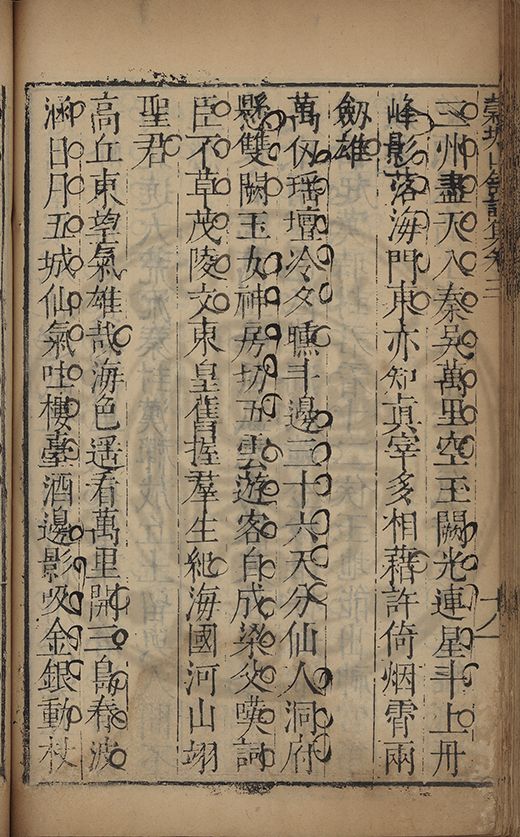 山舘詩集卷三
三州盡天入秦吳萬里空玉闕光連星斗上丹
峰影落海門東亦知真宰多相藉許倚烟霄兩
劒雄
萬仭瑶壇冷夕曛斗邊三十六天分仙人洞府
縣雙闕玉女神房切五雲遊客自成梁父嘆詞
臣不草茂陵文東皇舊握羣生紀海國河山翊
聖君
高丘東望氣雄哉海色遥看萬里開三島春波
涵日月五城仙氣吐樓臺酒邊影吸金銀動杖